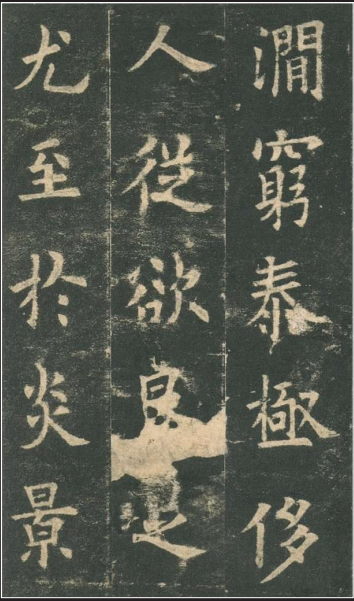 澗窮泰極侈
人從欲良足
尤至於炎景